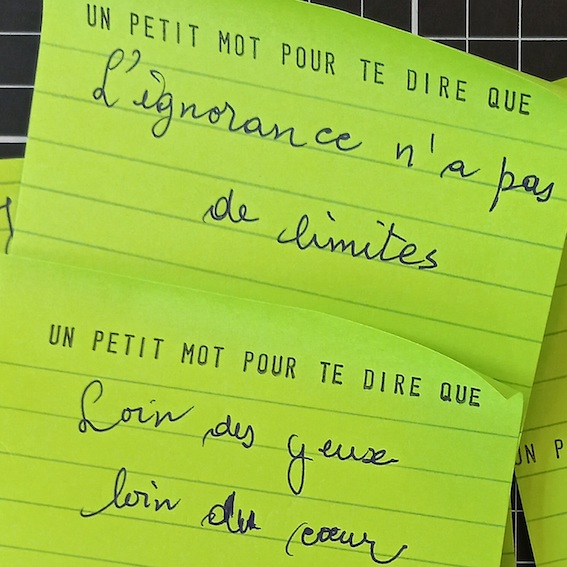 UN PETIT MOT POUR TE DIRE QUE
L'ignorance n'a pas
de limites
UN PETIT MOT POUR TE DIRE QUE
Loin des yeux
loin du cœur
UN P